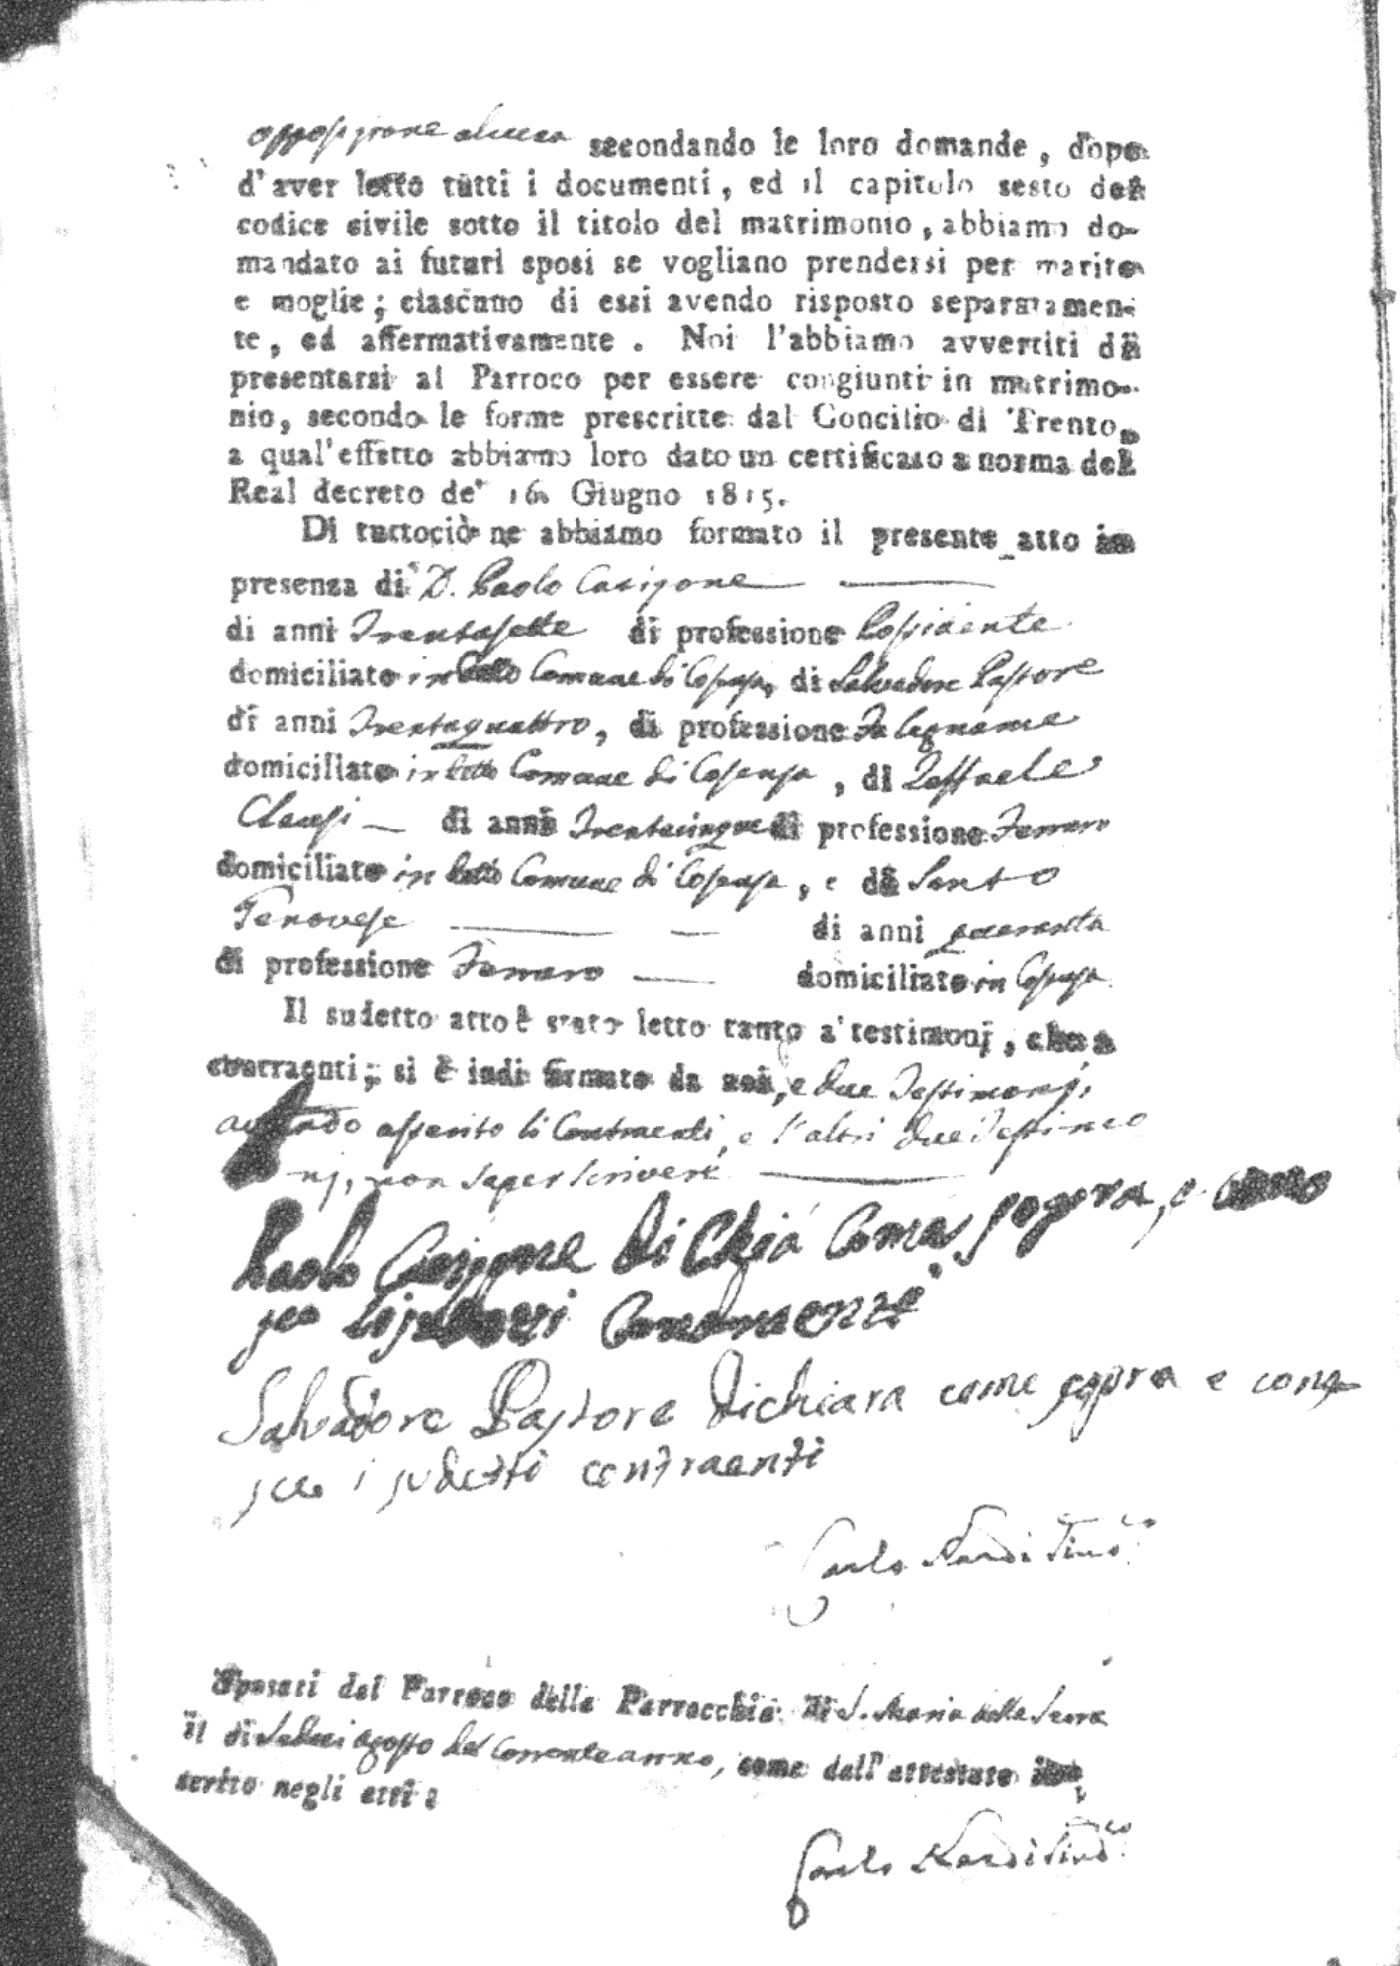 opposizione alcuna secondando le loro domande, dopo
d'aver letto tutti i documenti, ed il capitolo sesto del
codice civile sotto il titolo del matrimonio, abbiamo do-
mandato ai futuri sposi se vogliano prendersi per marito
e moglie; ciascuno di essi avendo risposto separatamen-
te, ed affermativamente. Noi l'abbiamo avvertiti di
presentarsi al Parroco per essere congiunti in matrimo-
nio, secondo le forme prescritte dal Concilio di Trento,
a qual'effetto abbiamo loro dato un certificato a norma del
Real decreto de' 16 Giugno 1815.
Di tuttociò ne abbiamo formato il presente atto in
presenza di D. Paolo Carigone
di anni Trentasette di professione Possidente
domiciliato in detto Comune di Cosenza, di Salvadore Pastore
di anni Trentaquattro, di professione Falegname
domiciliato in detto Comune di Cosenza, di Raffaele
Clausi di anni Trentacinque di professione Ferraro
domiciliato in detto Comune di Cosenza, e di Santo
Genovese di anni quaranta
di professione Ferraro domiciliato in Cosenza
Il sudetto atto è stato letto tanto a' testimonj, che a
contraenti; si è indi firmato da noi, e due Testimonj,
avendo asserito li Contraenti, e l'altri due Testimo
nj, non saper scrivere
Paolo di Chia Come sopra, e cono
sco li Contraenti
Salvadore Pastore dichiara come sopra e cono
sco i sudetti contraenti
Carlo Nardi Sind.co
Sposati dal Parroco della Parrocchia di S. Maria della Serra
il dì Sedeci Agosto del Corrente anno, come dall'attestato in-
serito negli atti:
Carlo Nardi Sind.co